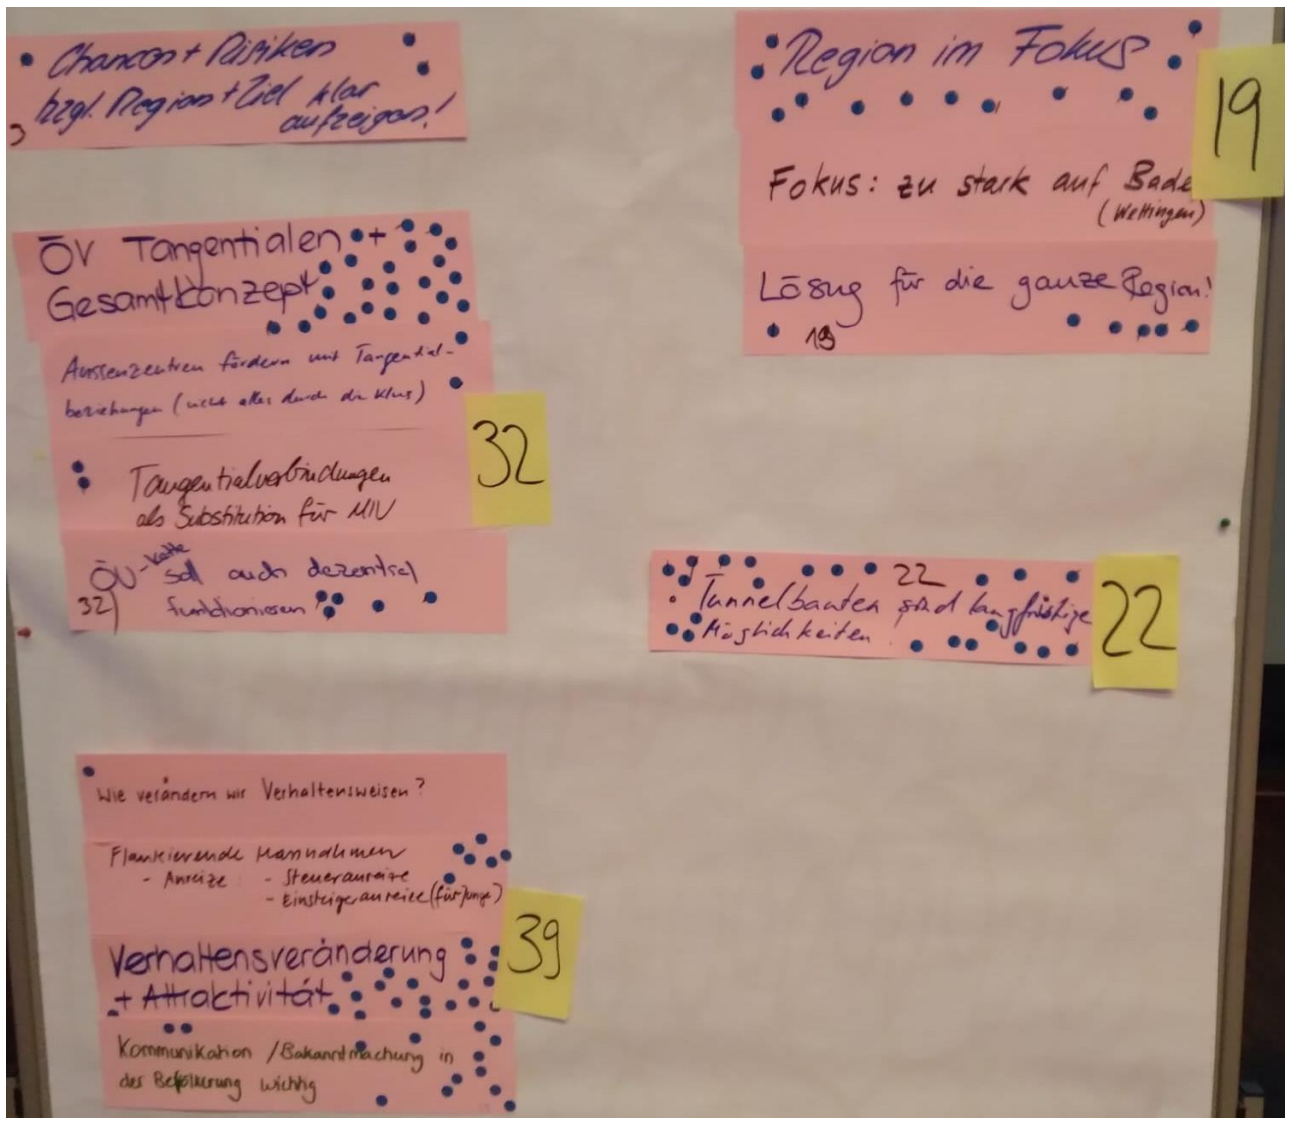 Chancen + Risiken
bzgl. Region + Ziel klar
aufzeigen!
3
ÖV Tangentialen +
Gesamtkonzept
Aussenzentren fördern mit Tangential-
beziehungen (nicht alles durch die Klus)
32
Tangentialverbindungen
als Substitution für MIV
ÖV-Kette soll auch dezentral
32) funktionieren!
Wie verändern wir Verhaltensweisen?
Flankierende Massnahmen
- Anreize: - Steueranreize
- Einsteigeranreize (für Junge)
39
Verhaltensveränderung
+ Attraktivität
Kommunikation / Bekanntmachung in
der Bevölkerung wichtig
Region im Fokus
19
Fokus: zu stark auf Bade
(Wettingen)
Lösug für die ganze Region!
19
22
Tunnelbauten sind langfristige
Möglichkeiten.
22